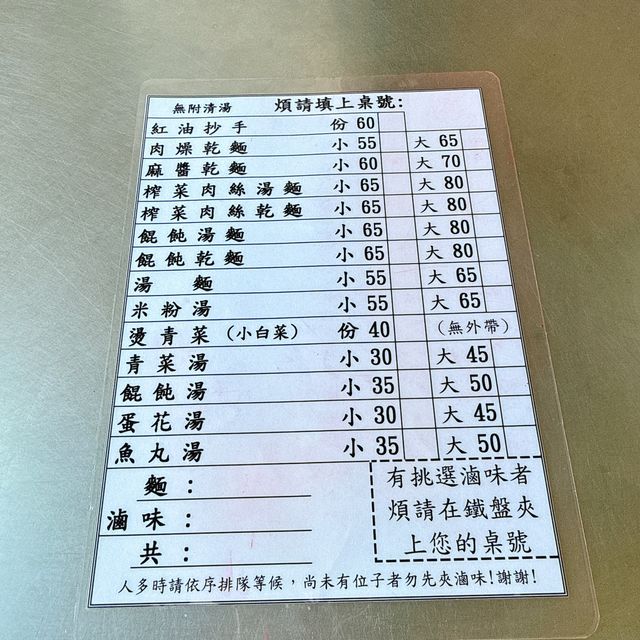 無附清湯 煩請填上桌號:
紅油抄手 份 60
肉燥乾麵 小 55 大 65
麻醬乾麵 小 60 大 70
榨菜肉絲湯麵 小 65 大 80
榨菜肉絲乾麵 小 65 大 80
餛飩湯麵 小 65 大 80
餛飩乾麵 小 65 大 80
湯麵 小 55 大 65
米粉湯 小 55 大 65
燙青菜(小白菜) 份 40 (無外帶)
青菜湯 小 30 大 45
餛飩湯 小 35 大 50
蛋花湯 小 30 大 45
魚丸湯 小 35 大 50
麵:
滷味:
共:
有挑選滷味者
煩請在鐵盤夾
上您的桌號
人多時請依序排隊等候,尚未有位子者勿先夾滷味!謝謝!